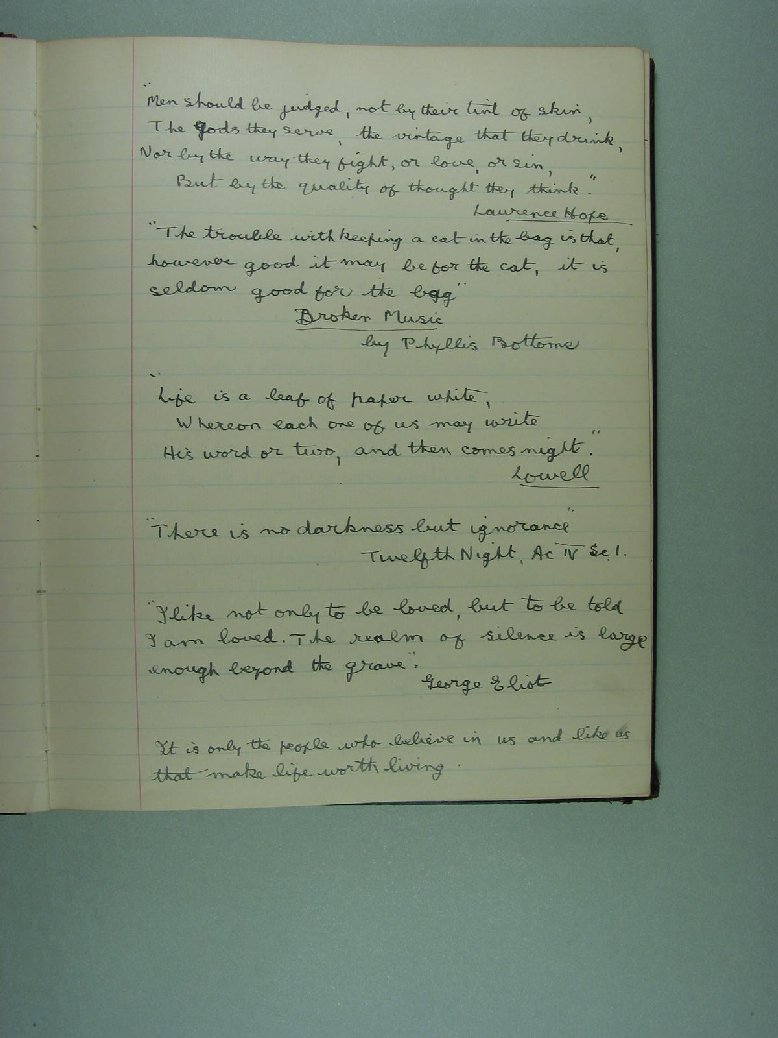 "Men should be judged, not by their tint of skin,
The Gods they serve, the vintage that they drink,
Nor by the way they fight, or love, or sin,
But by the quality of thought they think."
Laurence Hope
"The trouble with keeping a cat in the bag is that,
however good it may be for the cat, it is
seldom good for the bag"
Broken Music
by Phyllis Bottome
"Life is a leaf of paper white,
Whereon each one of us may write
His word or two, and then comes night."
Lowell
"There is no darkness but ignorance"
Twelfth Night, Ac IV Sc 1.
"I like not only to be loved, but to be told
I am loved. The realm of silence is large
enough beyond the grave".
George Eliot
It is only the people who believe in us and like us
that make life worth living.